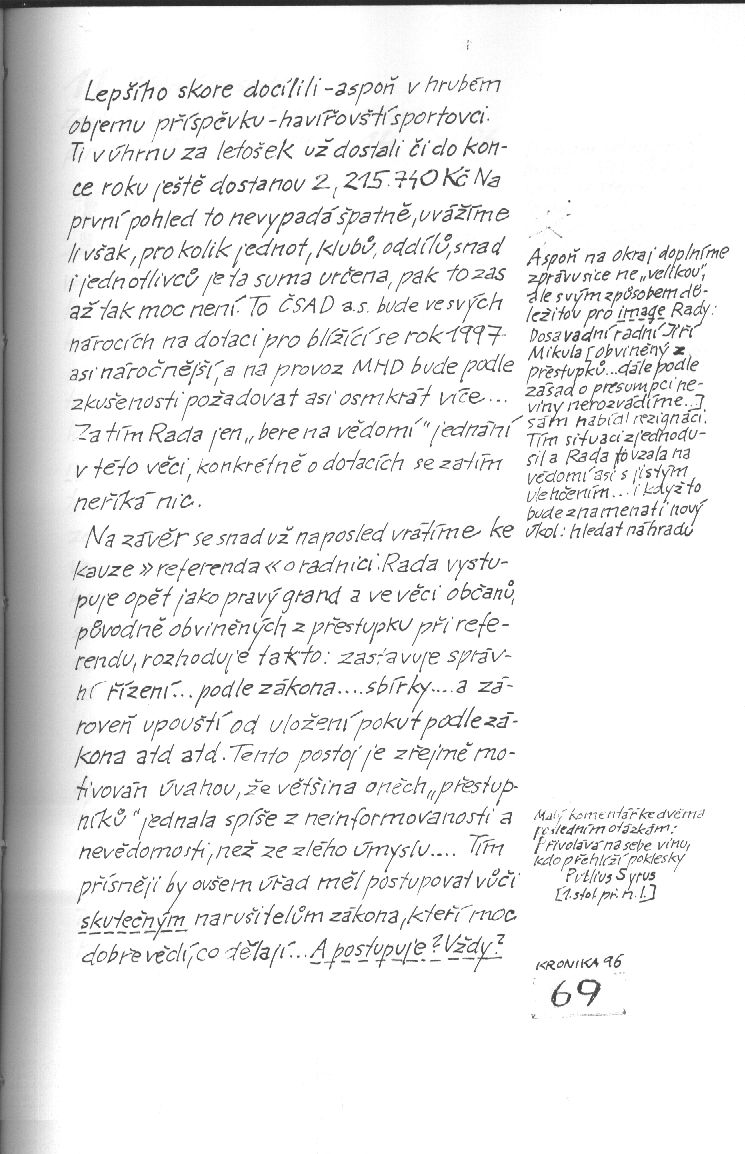 Lepšího skore docílili - aspoň v hrubém
objemu příspěvku - havířovští sportovci.
Ti v úhrnu za letošek už dostali či do kon-
ce roku ještě dostanou 2, 215.740 Kč Na
první pohled to nevypadá špatně, uvážíme
li však, pro kolik jednot, klubů, oddílů, snad
i jednotlivců je ta suma určena, pak to zas
až tak moc není. To ČSAD a.s. bude ve svých
nárocích na dotaci pro blížící se rok 1997
asi náročnější, a na provoz MHD bude podle
zkušenosti požadovat asi osmkrát více...
Zatím Rada jen „bere na vědomí" jednání
v této věci, konkrétně o dotacích se zatím
neříká nic.
Na závěr se snad už naposled vrátíme ke
kauze »referenda« o radnici. Rada vystu-
puje opět jako pravý grand a ve věci občanů,
původně obviněných z přestupku při refe-
rendu, rozhoduje takto: zastavuje správ-
ní řízení... podle zákona.... sbírky.... a zá-
roveň upouští od uložení pokut podle zá-
kona atd atd. Tento postoj je zřejmě mo-
tivován úvahou, že většina oněch „přestup-
níků" jednala spíše z neinformovanosti a
nevědomosti, než ze zlého úmyslu.... Tím
přísněji by ovšem úřad měl postupovat vůči
skutečným narušitelům zákona, kteří moc
dobře vědí, co dělají... A postupuje? Vždy?
Aspoň na okraj doplníme
zprávu sice ne „velkou",
ale svým způsobem dů-
ležitou pro image Rady:
Dosavadní radní Jiří
Mikula [obviněný z
přestupků... dále podle
zásad o presumpci ne-
viny nerozvádíme...]
sám nabídl rezignaci.
Tím situaci zjednodu-
šil a Rada to vzala na
vědomí asi s jistým
ulehčením... i když to
bude znamenati nový
úkol: hledat náhradu
Malý komentář ke dvěma
posledním otázkám:
Přivolává na sebe vinu,
kdo přehlíží poklesky
Publius Syrus
[1. stol. př. n. l.]
KRONIKA 96
69